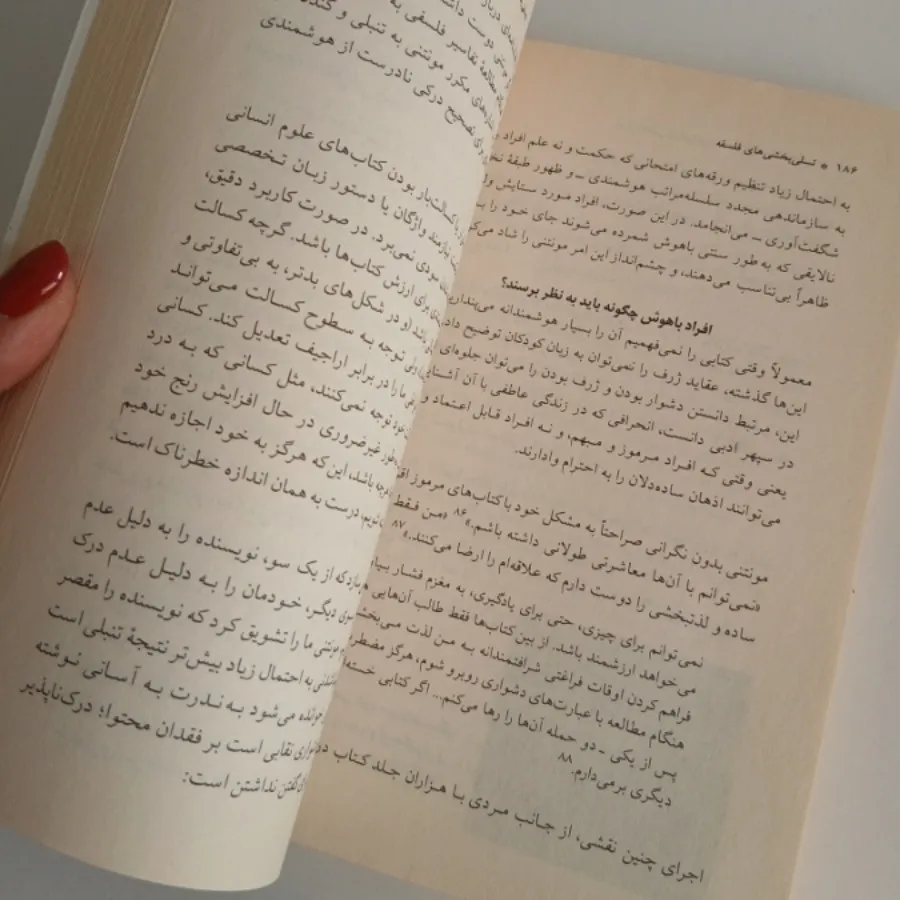 ۱۸۶ * تسلی‌بخشی‌های فلسفه
به احتمال زیاد تنظیم ورقه‌های امتحانی که حکمت و نه علم افراد
به سازماندهی مجدد سلسله‌مراتب هوشمندی ـ و ظهور طبقهٔ
شگفت‌آوری ـ می‌انجامد. در این صورت، افراد مورد ستایش
نالایقی که به طور سنتی باهوش شمرده می‌شوند جای خود را
ظاهراً بی‌تناسب می‌دهند، و چشم‌انداز این امر مونتنی را شاد
افراد باهوش چگونه باید به نظر برسند؟
معمولاً وقتی کتابی را نمی‌فهمیم آن را بسیار هوشمندانه
این‌ها گذشته، عقاید ژرف را نمی‌توان به زبان کودکان توضیح
این، مرتبط دانستن دشوار بودن و ژرف بودن را می‌توان جلوه‌ای
در سپهر ادبی دانست، انحرافی که در زندگی عاطفی با آن
یعنی وقتی که افراد مرموز و مبهم، و نه افراد قابل اعتماد و
می‌توانند اذهان ساده‌دلان را به احترام وادارند.
مونتنی بدون نگرانی صراحتاً به مشکل خود با کتاب‌های مرموز
«نمی‌توانم با آن‌ها معاشرتی طولانی داشته باشم.»۸۶ «من فقط
ساده و لذتبخشی را دوست دارم که علاقه‌ام را ارضا می‌کنند.»۸۷
نمی‌توانم برای چیزی، حتی برای یادگیری، به مغزم فشار
می‌خواهد ارزشمند باشد. از بین کتاب‌ها فقط طالب آن‌هایی
فراهم کردن اوقات فراغتی شرافتمندانه به من لذت
هنگام مطالعه با عبارت‌های دشواری روبرو شوم، هرگز
پس از یکی ـ دو حمله آن‌ها را رها می‌کنم... اگر کتابی خسته
دیگری برمی‌دارم.۸۸
اجرای چنین نقشی، از جانب مردی با هزاران جلد کتاب
مطالعهٔ تفاسیر فلسفی به
مکرر مونتنی به تنبلی و
تصحیح درکی نادرست از هوشمندی
کسالت‌بار بودن کتاب‌های علوم انسانی
نیازمند واژگان یا دستور زبان تخصصی
سودی نمی‌برد. در صورت کاربرد دقیق،
برای ارزش کتاب‌ها باشد. گرچه کسالت
و در شکل‌های بدتر، به بی‌تفاوتی و
توجه به سطوح کسالت می‌تواند
ما را در برابر اراجیف تعدیل کند. کسانی
توجه نمی‌کنند، مثل کسانی که به درد
غیرضروری در حال افزایش رنج خود
باشد، این که هرگز به خود اجازه ندهیم
درست به همان اندازه خطرناک است.
که از یک سو، نویسنده را به دلیل عدم
دیگر، خودمان را به دلیل عدم درک
مونتنی ما را تشویق کرد که نویسنده را مقصر
به احتمال زیاد بیش‌تر نتیجهٔ تنبلی است
خوانده می‌شود به ندرت به آسانی نوشته
نقابی است بر فقدان محتوا؛ درک‌ناپذیر
گفتن نداشتن است: